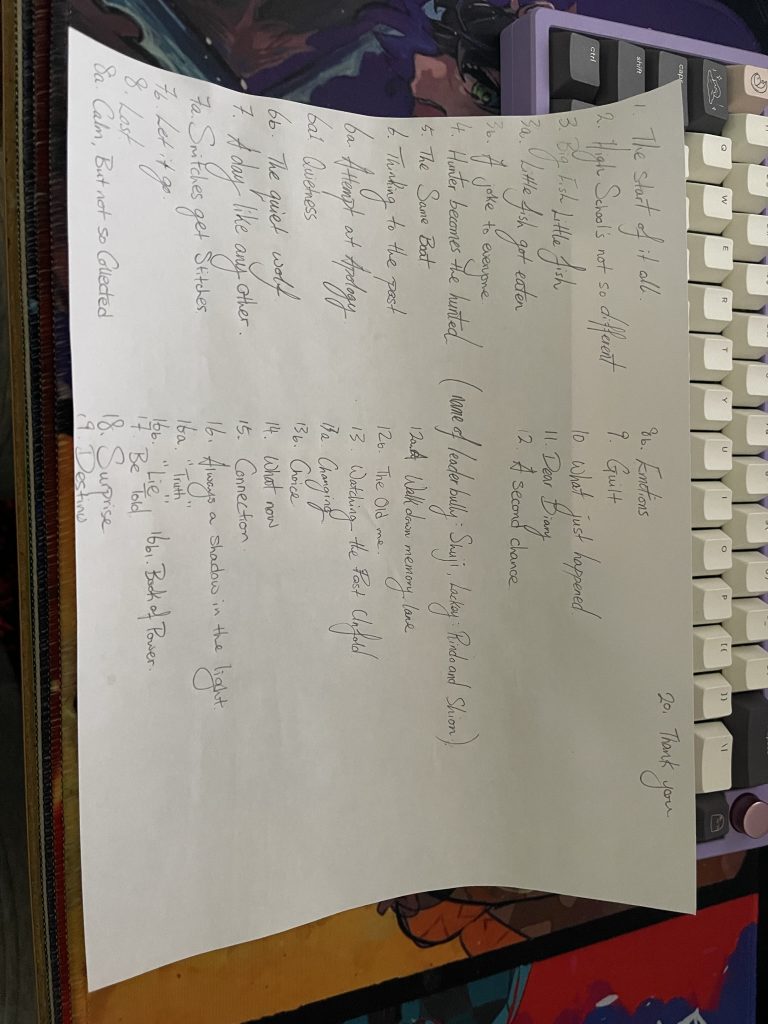 1. The start of it all.
2. High School's not so different
3. Big fish Little fish
3a. Little fish got eaten
3b. A joke to everyone
4. Hunter becomes the hunted (name of leader bully: Shuji, Lackey: Rindo and Shion)
5. The Same Boat
6. Thinking to the past
6a. Attempt at Apology
6a1 Quietness
6b. The quiet wolf
7. A day like any other.
7a. Snitches get Stitches
7b. Let it go.
8. Last
8a. Calm, But not so Collected
8b. Emotions
9. Guilt
10 What just happened
11. Dear Diary
12 A second chance
12a Walk down memory lane
12b. The Old me.
13. Watching the Past Unfold
13a Changing
13b. Choice
14. What now
15. Connection.
16. Always a shadow in the light.
16a. "Truth"
16b. "Lie" 16b1. Back of Power.
17. Be told
18. Surprise
19. Destiny
20. Thank you
ctrl
shift
caps
Q
W
E
R
T
Y
U
I
O
P